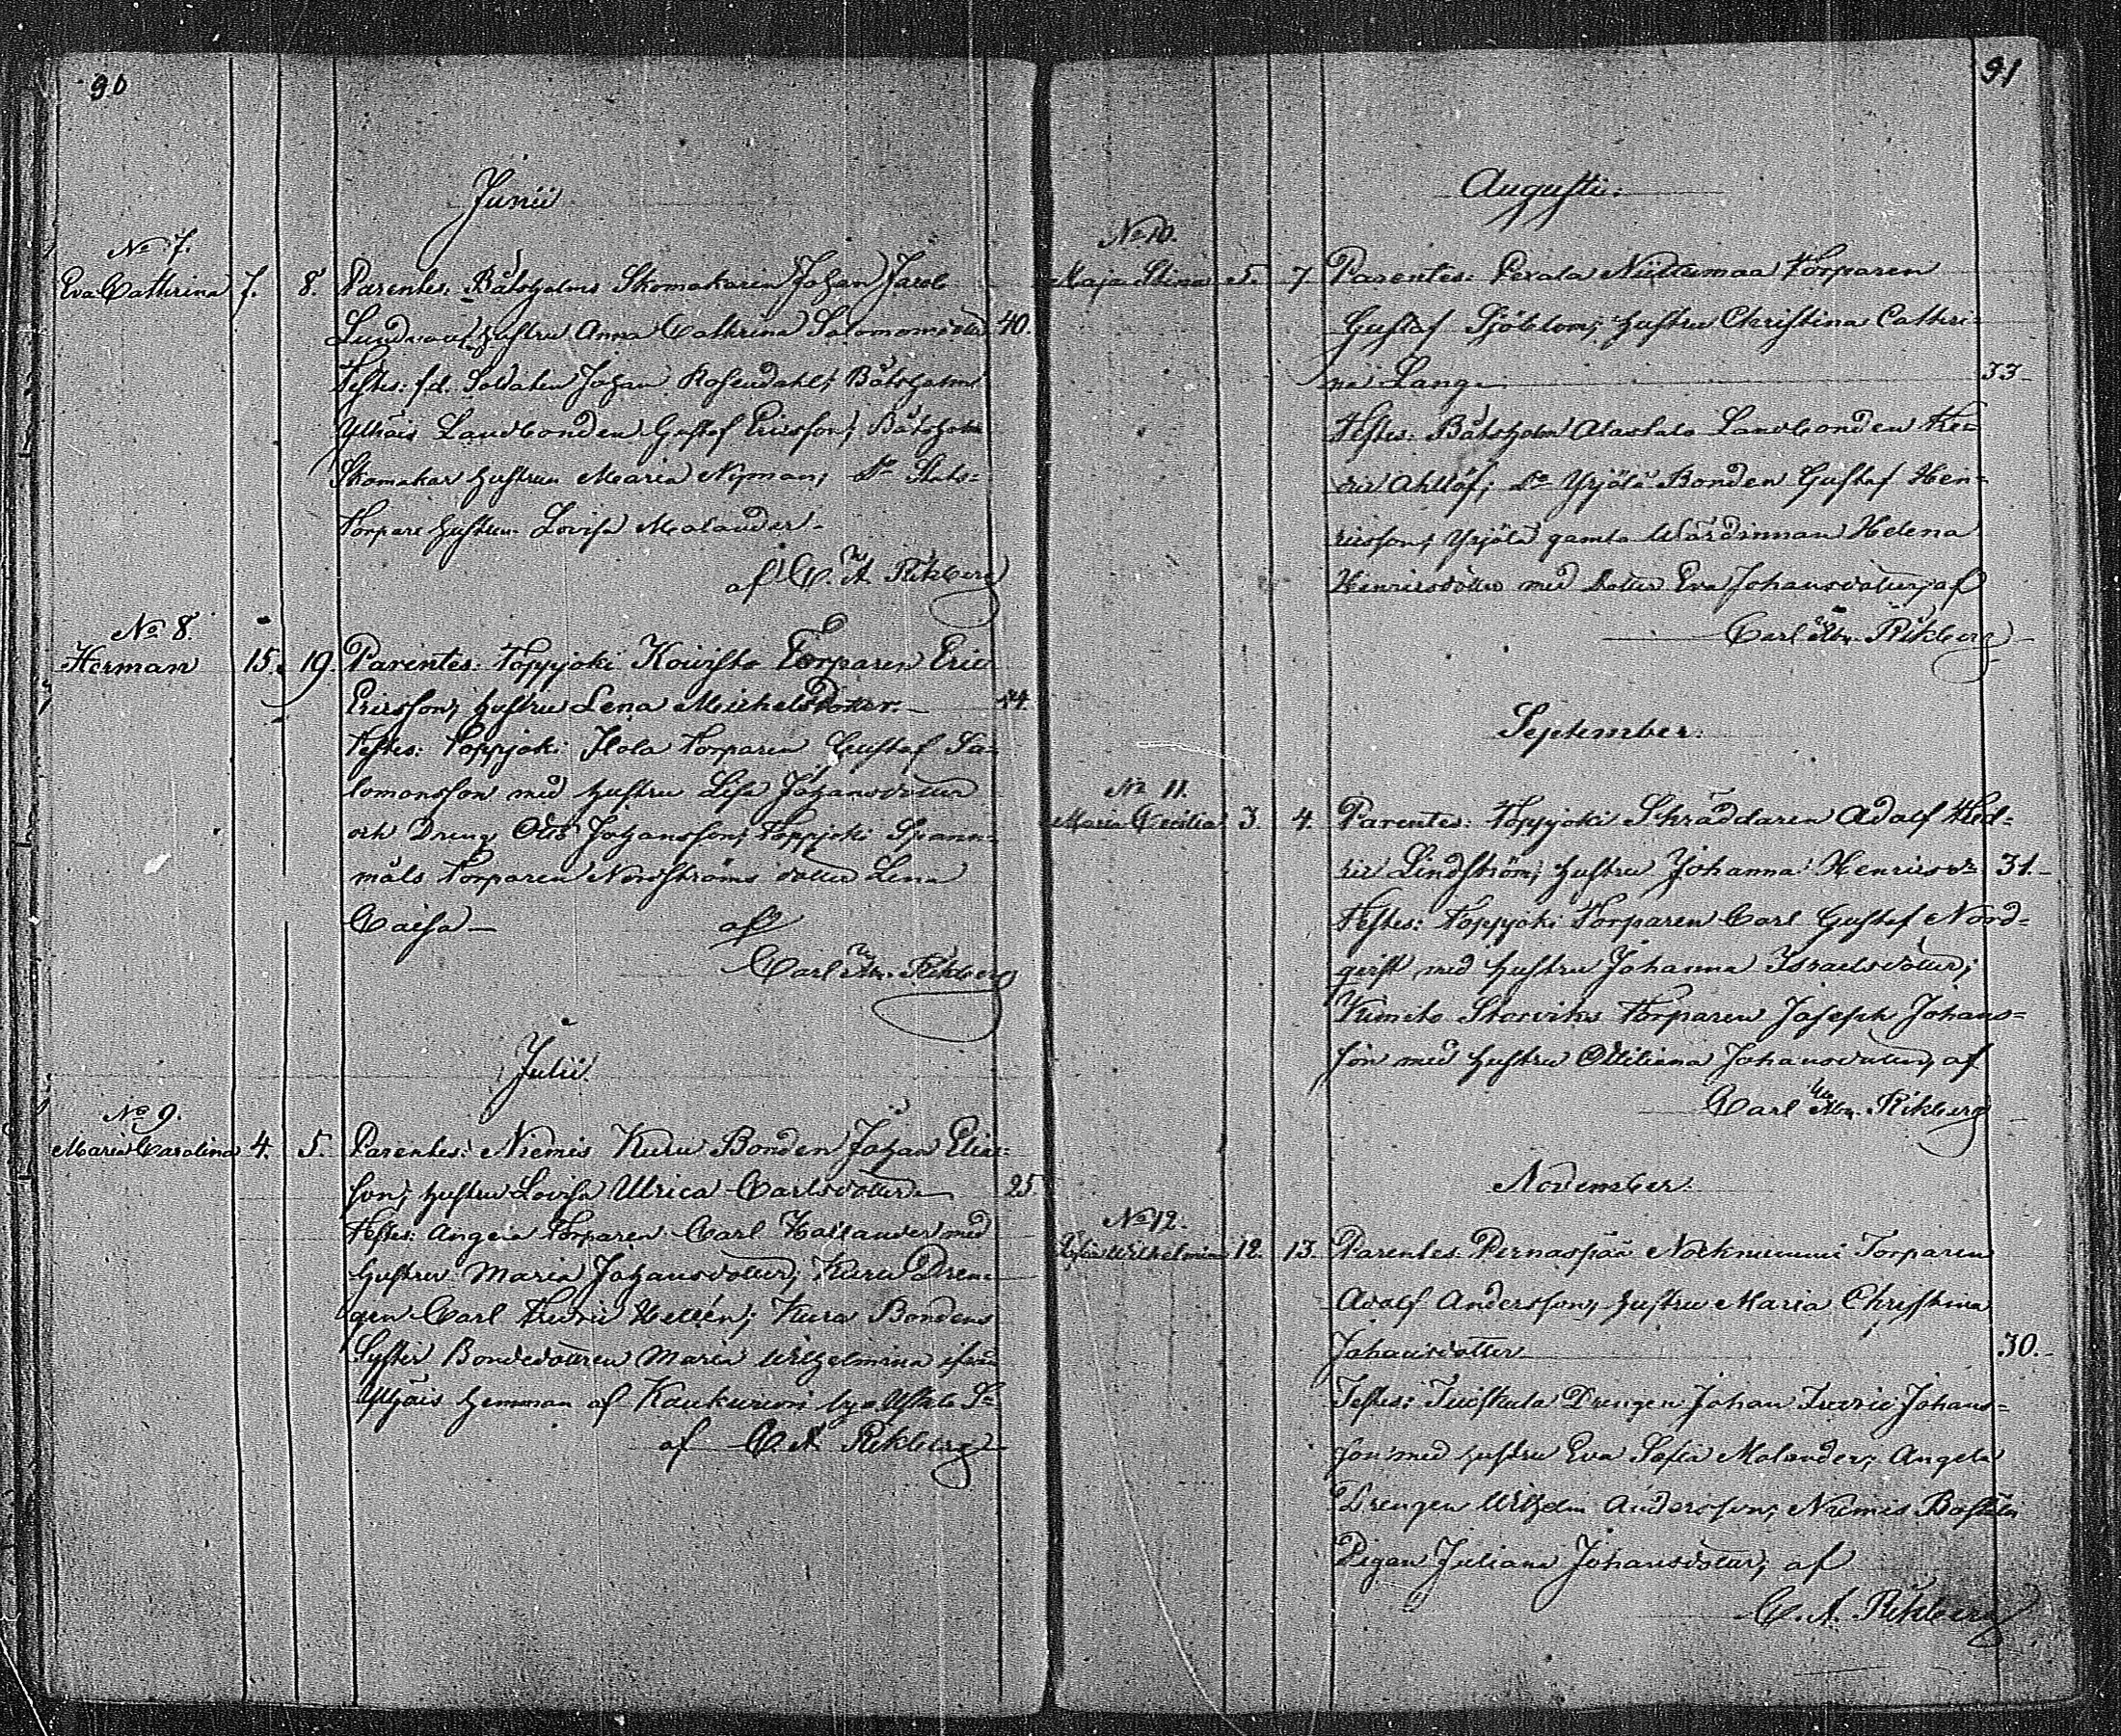 90
Junii
No 7.
Eva Cathrina 7. 8. Parentes: Båtsholms Skomakaren Johan Jacob
hustru Anna Cathrina Salomonsdotter 40.
Testes: f.d. Soldaten Johan Rosendahl; Båtsholms
Yllväis Landbonden Gustaf Ericsson; Båtsholm
Skomakar hustrun Maria Nyman; Do Stats-
Torpare hustrun Lovisa Malander.
af C. A. Rikberg
No 8.
Herman 15. 19. Parentes: Toppjoki Koivisto Torparen Eric
Ericsson; hustru Lena Michelsdotter. 44.
Testes: Toppjoki Torparen Gustaf Sa-
lomonsson med hustru Lisa Johansdotter
och Dreng Otto Johansson; Toppjoki Spann-
måls Torparen Nordströms dotter Lena
Caisa af
Carl Rikberg
Julii.
No 9.
Maria Carolina 4. 5. Parentes: Niemis Kuru Bonden Johan Elias-
son; hustru Lovisa Ulrica Carlsdotter 25
Testes: Angela Torparen Carl med
hustru Maria Johansdotter; Kuru Dren-
gen Carl Hellén; Kuru Bondens
Syster Bondedottren Maria Wilhelmina ifrån
hemman af by
af C. A. Rikberg
91
Augusti.
No 10.
Maja Stina 5. 7. Parentes: Perala Niittumaa Torparen
Gustaf Sjöblom; hustru Christina Cathri-
na Lang 33
Testes: Båtsholm Alastalo Landbonden Fre-
dric Ahllöf; Do Yrjölä Bonden Gustaf Hen-
ricsson; Yrjölä gamla Wärdinnan Helena
Henricsdotter med dotter Eva Johansdotter; af
Carl Rikberg
September.
No 11.
Maria Cecilia 3. 4. Parentes: Toppjoki Skräddaren Adolf Fred-
ric Lindström; hustru Johanna Henricsdr 31.
Testes: Toppjoki Torparen Carl Gustaf Nord-
qvist med hustru Johanna Israelsdotter;
Kimito Storviks Torparen Joseph Johans-
son med hustru Ottiliana Johansdotter, af
Carl Rikberg
November.
No 12.
Wilhelmina 12. 13. Parentes: Pernaspää Torparen
Adolf Andersson; hustru Maria Christina
Johansdotter 30.
Testes: Tuoskula Drengen Johan Fredric Johans-
son med hustru Eva Sofia Malander; Angela
Drengen Wilhelm Andersson; Niemis
Pigan Juliana Johansdotter; af
C. A. Rikberg